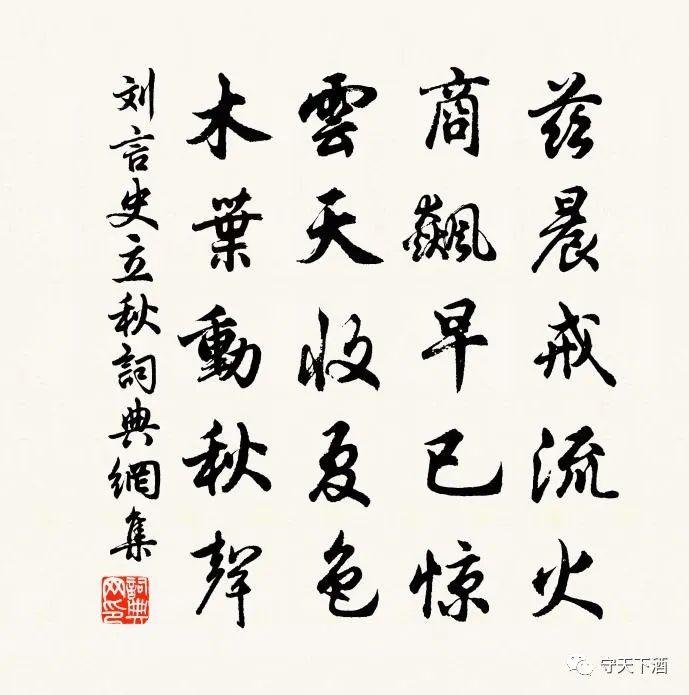 茲晨戒流火
商飆早已惊
雲天收夏色
木葉動秋聲
刘言史立秋詞典網集
詞典网印
守天下酒